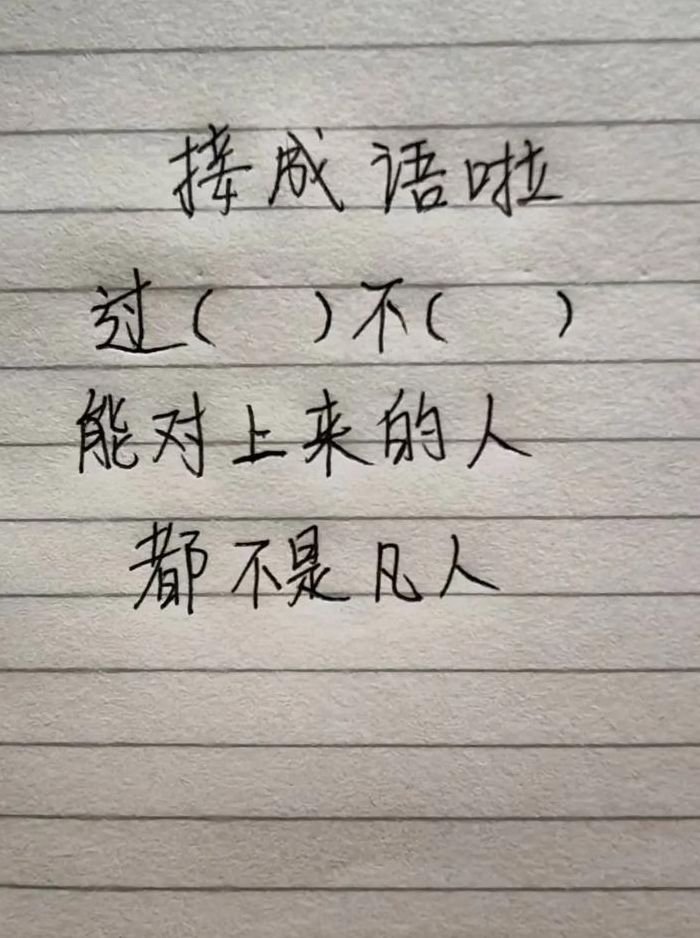 接成语啦
过(    )不(    )
能对上来的人
都不是凡人